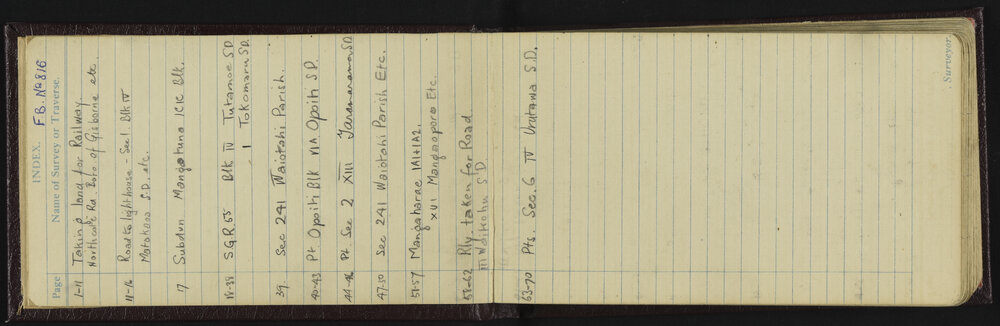 INDEX. F.B. No 816
Page Name of Survey or Traverse. Surveyor.
1-11 Taking land for Railway
Northcote Rd. Boro of Gisborne etc.
11-16 Road to lighthouse - Sec 1. Blk IV
Matakaoa S.D. etc.
17 Subdvn Mangatuna 1C1C Blk.
18-38 S.G.R 55 Blk IV Tutamoe S.D
" 1 Tokomaru S.D
39. Sec 241 Waiotahi Parish.
40-43 Pt Opoiti Blk VIA Opoiti S.D.
44-46 Pt. Sec 2 XIII S.D
47-50 Sec 241 Waiotahi Parish Etc.
51-57 Mangaharae 1A1+1A2.
XVI Mangaoporo Etc.
58-62 Rly. taken for Road
III Waikohu S.D
63-70 Pts. Sec. 6 IV Urutawa S.D.